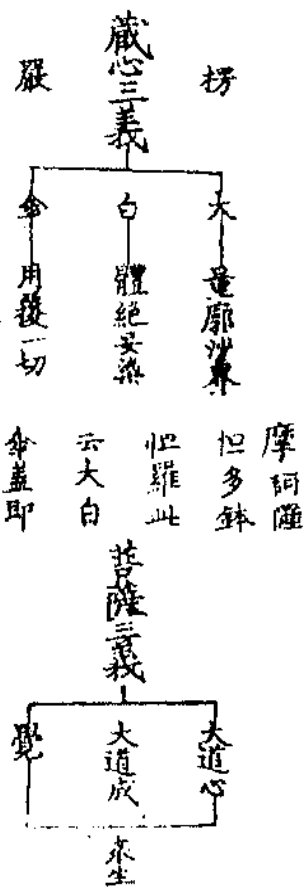 楞
藏心三義
嚴
大 量廓沙界
白 體絕妄染
傘 用覆一切
摩訶薩
怛多鉢
怛羅此
云大白
傘蓋即
菩薩三義
大道心
大道成
覺
衆生